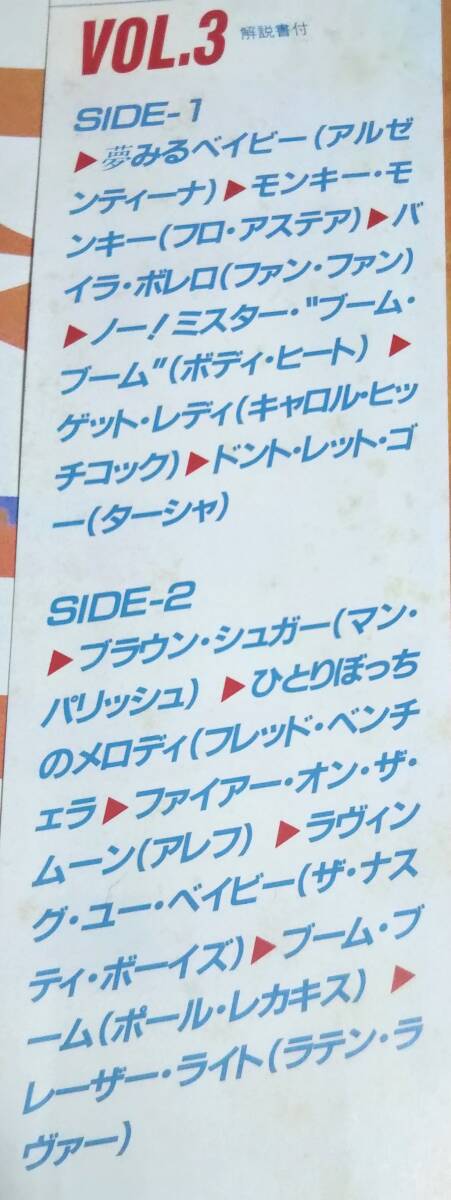 VOL.3 解説書付
SIDE-1
▶夢みるベイビー(アルゼ
ンティーナ)▶モンキー・モ
ンキー(フロ・アステア)▶バ
イラ・ボレロ(ファン・ファン)
▶ノー!ミスター・"ブーム・
ブーム"(ボディ・ヒート) ▶
ゲット・レディ(キャロル・ヒッ
チコック)▶ドント・レット・ゴ
ー(ターシャ)
SIDE-2
▶ブラウン・シュガー(マン・
パリッシュ) ▶ひとりぼっち
のメロディ(フレッド・ベンチ
ェラ▶ファイアー・オン・ザ・
ムーン(アレフ) ▶ラヴィン
グ・ユー・ベイビー(ザ・ナス
ティ・ボーイズ)▶ブーム・ブ
ーム(ポール・レカキス) ▶
レーザー・ライト(ラテン・ラ
ヴァー)